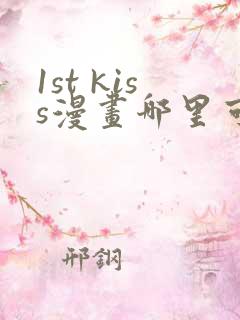 1st kis
s漫畫哪里可
邢鋼